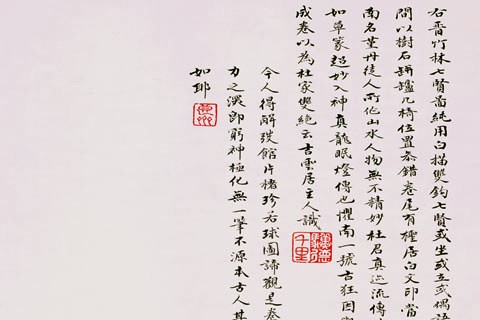 右晉竹林七賢圖純用白描雙鉤七賢或坐或立或偶語
間以樹石缾罏几椅位置參錯卷尾有檉居白文印當
南名堇丹徒人所作山水人物無不精妙杜君真迹流傳
如草家超妙入神真龍眠燈傳也懼南一號古狂因
成卷以為杜家雙絕云吉雲居主人識
千里
今人得解弢館片楮珍若球圖諦觀是卷
力之深即窮神極化無一筆不源本古人其
如耶